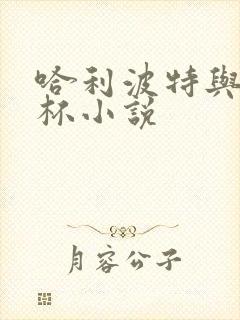 哈利波特與
杯小說
月容公子